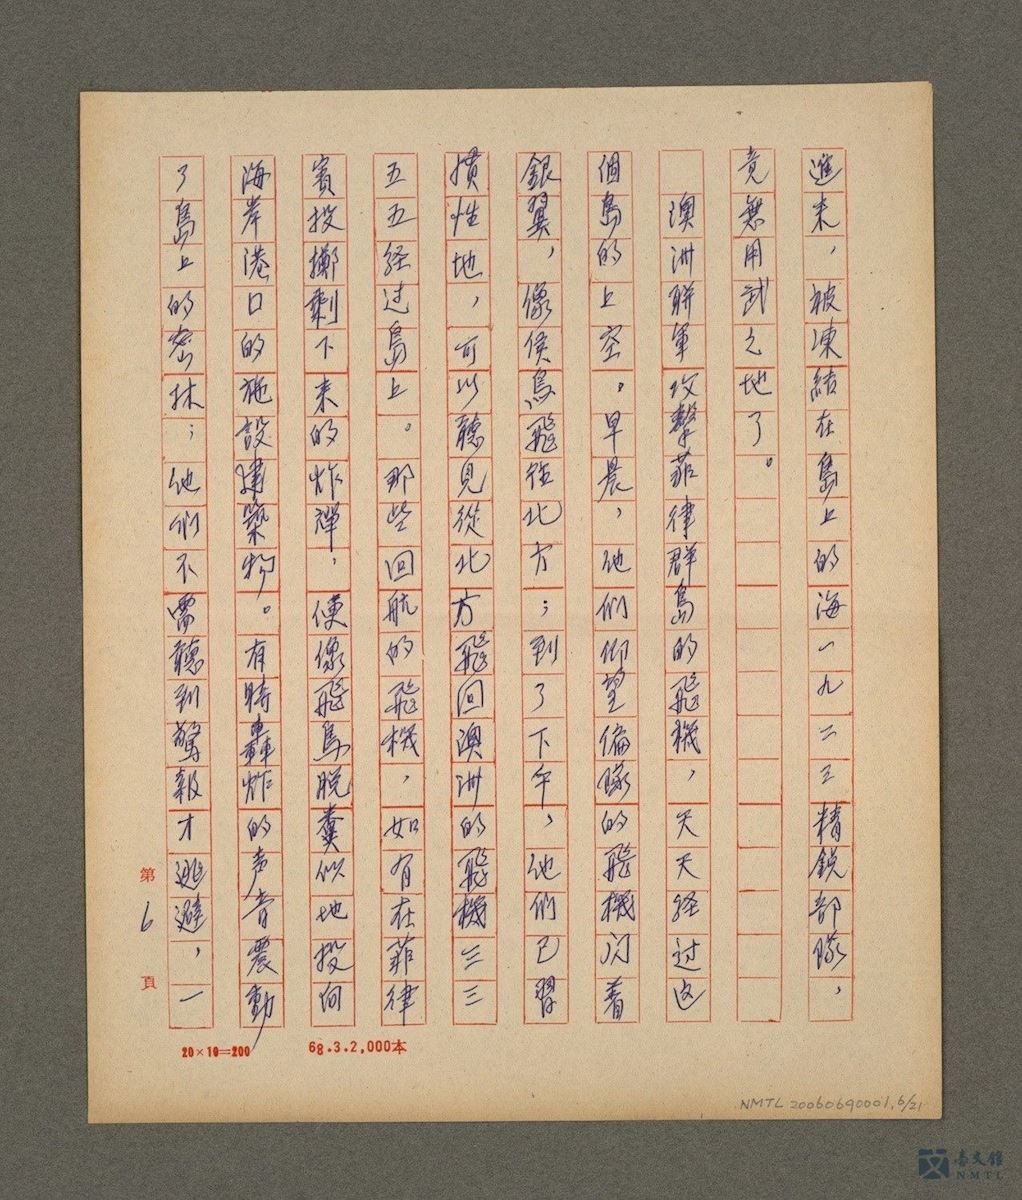 進来，被凍結在島上的海一九二三精鋭部隊，
竟無用武之地了。
澳洲聯軍攻擊菲律群島的飛機，天天経过这
個島的上空。早晨，他們仰望偏隊的飛機闪着
銀翼，像侯鳥飛往北方；到了下午，他們已習
摜性地，可以聽見從北方飛回澳洲的飛機三三
五五経过島上。那些回航的飛機，如有在菲律
賓投擲剩下来的炸弹，便像飛鳥脱糞似地投向
海岸港口的施設建築物。有時轟炸的声音震動
了島上的密林；他們不需聽到驚報才逃避，一
第6頁
20×10=200
68.3.2,000本
NMTL20060690001,6/21
臺文館
NMTL